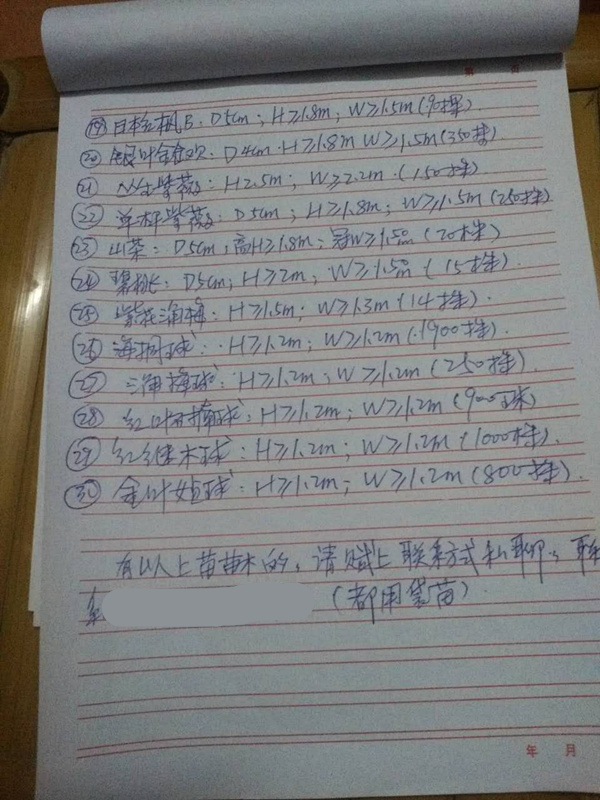 ⑲日本红枫B：D5cm；H≥1.8m；W≥1.5m(90株).
⑳银叶金合欢：D4cm．H≥1.8m W≥1.5m(350株)
㉑ 紫薇：H2.5m；W≥2.2m．(150株)
㉒单杆紫薇：D5cm；H≥1.8m；W≥1.5m(250株)
㉓山茶：D5cm；高H≥1.8m；冠W≥1.50m(20株)
㉔碧桃：D5cm；H≥2m；W≥1.50m(15株).
㉕紫花海桐：H≥1.5m；W≥1.3m(14株).
㉖海桐球：H≥1.2m；W≥1.2m(1900株).
㉗三角梅球：H≥1.2m；W≥1.2m(250株).
㉘红叶石楠球：H≥1.2m；W≥1.2m(900球)
㉙红继木球：H≥1.2m；W≥1.2m(1000株).
㉚金叶女贞球：H≥1.2m；W≥1.2m(800株).
有以上苗苗木的，请赋上联系方式私聊，联
系 (都用袋苗)
年 月